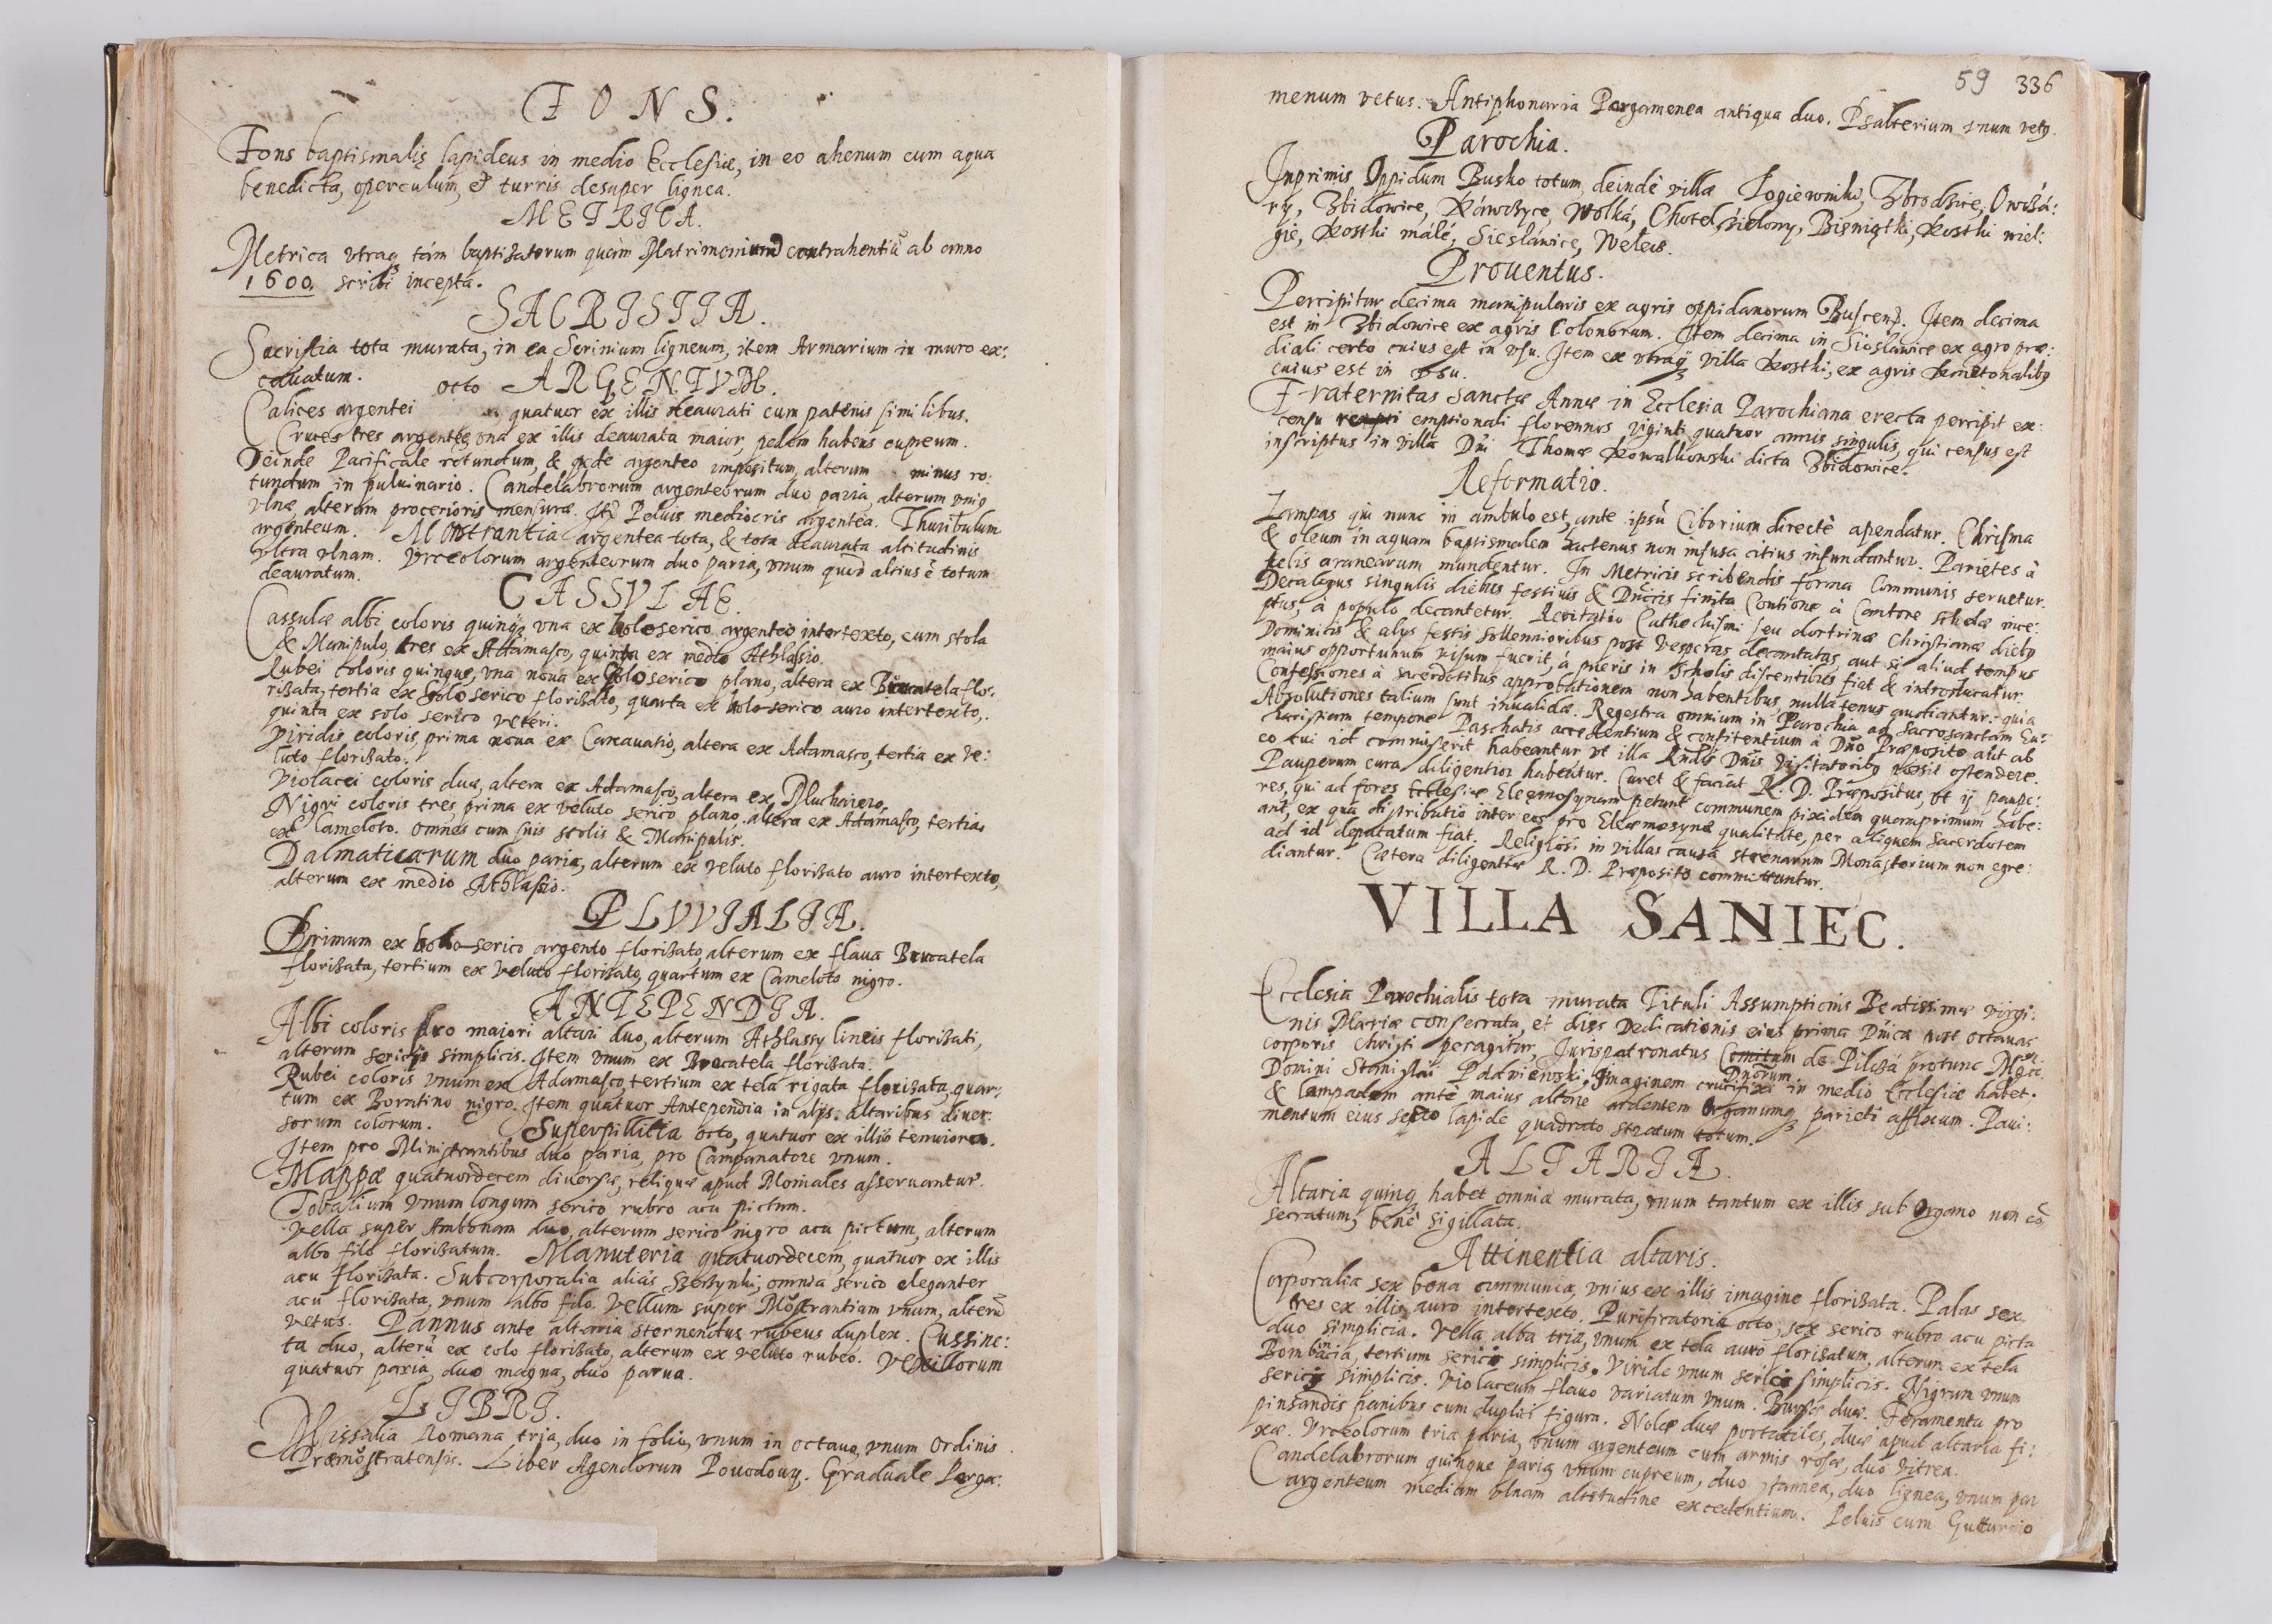 FONS.
Fons baptismalis lapideus in medio Ecclesiæ, in eo ahenum cum aqua
benedicta, operculum, et turris desuper lignea.
METRICA.
Metrica vtraq tám baptisatorum quàm Matrimonium contrahentiũ ab anno
1600. scribi incepta.
SACRISTIA.
Sacristia tota murata, in ea Scrinium ligneum, item Armarium in muro ex:
cauatum.
ARGENTVM.
Calices argentei octo, quatuor ex illis deaurati cum patenis similibus.
Cruces tres argenteę, vna ex illis deaurata maior, pedem habens cupreum.
Deinde Pacificale rotundum, & pede argenteo impositum, alterum minus ro:
tundum in puluinario. Candelabrorum argenteorum duo paria, alterum vniq
vlnæ, alterum procerioris mensuræ. Itẽ Peluis mediocris argentea. Thuribulum
argenteum. Monstrantia argentea tota, & tota deaurata altitudinis
vltra vlnam. Vrceolorum argenteorum duo paria, vnum quod altius ẽ totum
deauratum.
CASSVLAE.
Cassulæ albi coloris quinq, vna ex holoserico argenteo intertexto, cum stola
& Manipulo, tres ex Adamasco, quinta ex medio Athlasio.
Rubei coloris quinque, vna noua ex holoserico plano, altera ex Brucatela flo:
risata, tertia ex holoserico florisato, quarta ex holoserico auro intertexto,
quinta ex solo serico veteri.
Viridis coloris, prima noua ex Canauatio, altera ex Adamasco, tertia ex Ve:
luto florisato.
Violacei coloris duæ, altera ex Adamasco, altera ex Muchaiero.
Nigri coloris tres, prima ex veluto serico plano, altera ex Adamasco, tertia
ex Cameloto. omnes cum suis stolis & Manipulis.
Dalmaticarum duo paria, alterum ex veluto florisato auro intertexto,
alterum ex medio Athlasio.
PLVVIALIA.
Primum ex holo-serico argento florisato, alterum ex flaua Brucatela
florisata, tertium ex Veluto florisato, quartum ex Cameloto nigro.
ANTEPENDIA.
Albi coloris pro maiori altari duo, alterum Athlassy lineis florisati,
alterum sericij simplicis. Item vnum ex Brocatela florisata.
Rubei coloris vnum ex Adamasco, tertium ex tela rigata florisata, quar:
tum ex Boratino nigro. Item quatuor Antependia in alijs altaribus diuer:
sorum colorum. Superpillitia octo, quatuor ex illis tenuiora.
Item pro Ministrantibus duo paria, pro Campanatore vnum.
Mappæ quatuordecem diuersæ, reliquæ apud Moniales asseruantur.
Tobalium vnum longum serico rubro acu pictum.
Vella super Ambonam duo, alterum serico nigro acu pictum, alterum
albo filo florisatum. Manuteria quatuordecem, quatuor ex illis
acu florisata. Subcorporalia aliás, omnia serico eleganter
acu florisata, vnum albo filo. Vellum super Mõstrantiam vnum, alterũ
vetus. Pannus ante altaria sternendus rubeus duplex. Cussine:
ta duo, alterũ ex solo florisato, alterum ex veluto rubeo. Vexillorum
quatuor paria, duo magna, duo parua.
LIBRI.
Missalia Romana tria, duo in folio, vnum in octauo, vnum Ordinis
Præmõstratensis. Liber Agendorum Pouodowy. Graduale Perga:
59 336
menum vetus. Antiphonaria Pargamenea antiqua duo. Psalterium vnum vetq.
Parochia.
Inprimis Oppidum Busko totum, deindè villæ Łogiewniki, Zbrodzice, Owczá:
ry, Zbidowice, Káwczyce, Wolká, Chotel zielony, Biśniątki, Kosthi wiel:
gie, Kosthi małé, Siesláwice, Welcz.
Prouentus.
Percipitur decima manipularis ex agris oppidanorum Buscens. Item decima
est in Zbidowice ex agris Colonorum. Item decima in Siesláwice ex agro præ:
diali certo cuius est in vsu. Item ex vtraq villa Kosthi, ex agris Kmetonalibq
cuius est in vsu.
Fraternitas Sanctæ Annæ in Ecclesia Parochiana erecta percipit ex:
censu emptionali florennos viginti quatuor annis singulis, qui census est
inscriptus in villa Dñi Thomæ Kowalkowski dicta Zbidowice.
Reformatio.
Lampas qui nunc in ambulo est, ante ipsũ Ciborium directè apendatur. Chrisma
& oleum in aquam baptismalem hactenus non infusa citius infundantur. Parietes à
telis aranearum mundentur. In Metricis scribendis forma Communis seruetur.
Decalogus singulis diebus festiuis & Dñicis finita Contione à Cantore scholæ ince:
ptus, à populo decantetur. Recitatio Cathechismi seu doctrinæ Christianæ diebq
Dominicis & alijs festis sollennioribus post vesperas decantatas, aut si aliud tempus
maius opportunum visum fuerit, á pueris in scholis discentibus fiat & introducatur.
Confessiones à sacerdotibus approbationem non habentibus, nulla tenus audiantur. quia
Absolutiones talium sunt inualidæ. Regestra omnium in Parochia ad Sacrosanctam Eu:
charistiam tempore Paschatis accedentium & confitentium à Dño Præposito aut ab
eo cui id commiserit habeantur vt illa Rñdis Dñis Visitatoribq possit ostendere.
Pauperum cura diligentior habeatur. Curet & faciat R. D. Præpositus, vt ij paupe:
res, qui ad fores Ecclesiæ Eleęmosynam petunt communem pixidem quamprimum habe:
ant, ex qua distributio inter eos pro Eleæmosynæ qualitate, per aliquem Sacerdotem
ad id deputatum fiat. Religiosi in villas causa strenarum Monasterium non egre:
diantur. Cætera diligentiæ R. D. Præposito committuntur.
VILLA SANIEC.
Ecclesia Parochialis tota murata Tituli Assumptionis Beatissimæ Virgi:
nis Mariæ consecrata, et dies Dedicationis eius prima Dñica post octauas
Corporis Christi peragitur, Jurispatronatus Comitum de Pilcza protunc Mgci
Dñorum
Domini Stanislai Padniewski, Imaginem crucifixi in medio Ecclesiæ habet.
& lampadem ante maius altare ardentem Organumq parieti affixum. Paui:
mentum eius secto lapide quadrato stratum totum.
ALTARIA.
Altaria quinq habet omnia murata, vnum tantum ex illis sub Organo non cõ
secratum, benè sigillata.
Attinentia altaris.
Corporalia sex bona communia, vnius ex illis imagine florisata. Palas sex,
tres ex illis auro intertexto. Purificatoria octo, sex serico rubro acu picta
duo simplicia. Vella alba tria, vnum ex tela auro florisatum, alterum ex tela
Bombacina, tertium serici simplicis. Viride vnum serici simplicis. Nigrum vnum
sericij simplicis. Violaceum flauo variatum vnum. Bursæ duæ. Feramenta pro
pinsandis panibus cum duplici figura. Nolæ duæ portatiles, duæ apud altaria fi:
xæ. Vrceolorum tria paria, vnum argenteum cum armis rosæ, duo vitrea.
Candelabrorum quinque paria, vnum cupreum, duo stannea, duo lignea, vnum par
argenteum mediam vlnam altitudine excedentium. Peluis cum Gutturnio